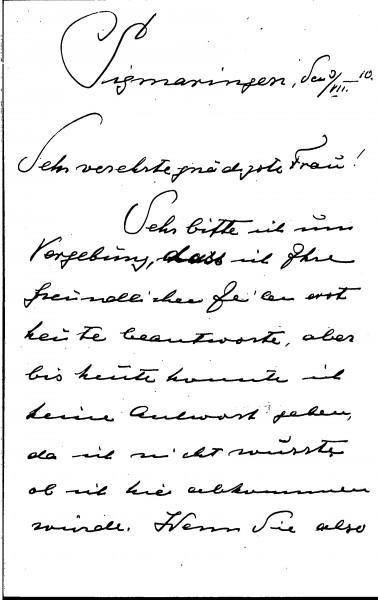 Sigmaringen, den 9/VII. 10.
Sehr verehrte gnädigste Frau!
Sehr bitte ich um
Vergebung, dass ich Ihre
freundlichen Zeilen erst
heute beantworte, aber
bis heute konnte ich
keine Antwort geben,
da ich nicht wüsste,
ob ich hier abkommen
würde. Wenn Sie also